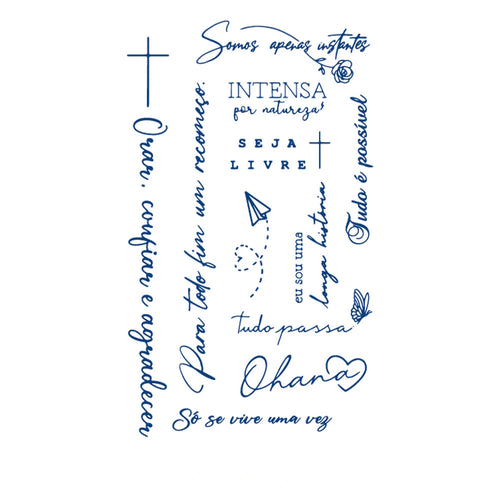 Somos apenas instantes
INTENSA
por natureza!
SEJA
LIVRE
Orar, confiar e agradecer
Para todo fim um recomeço.
Tudo é possível
eu sou uma
longa história
tudo passa
Ohana
Só se vive uma vez